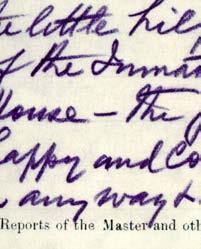 e little
of the Inmat
House – the
happy and Co
any way
Reports of the Master and oth